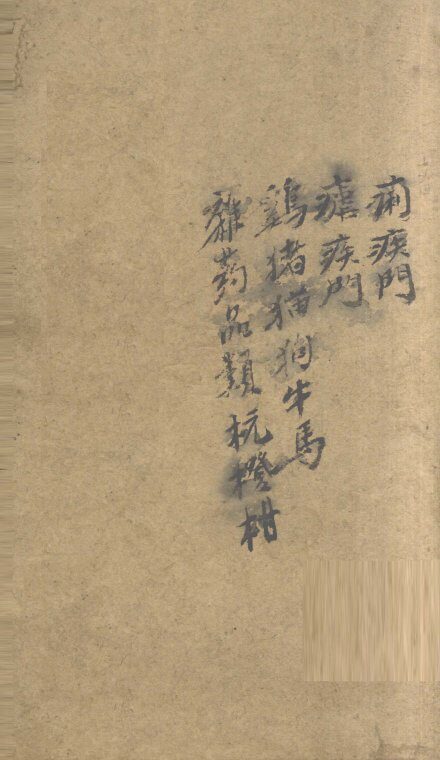 痢疾門
瘧疾門
鷄猪猫狗牛馬
雜药品類杭橙柑